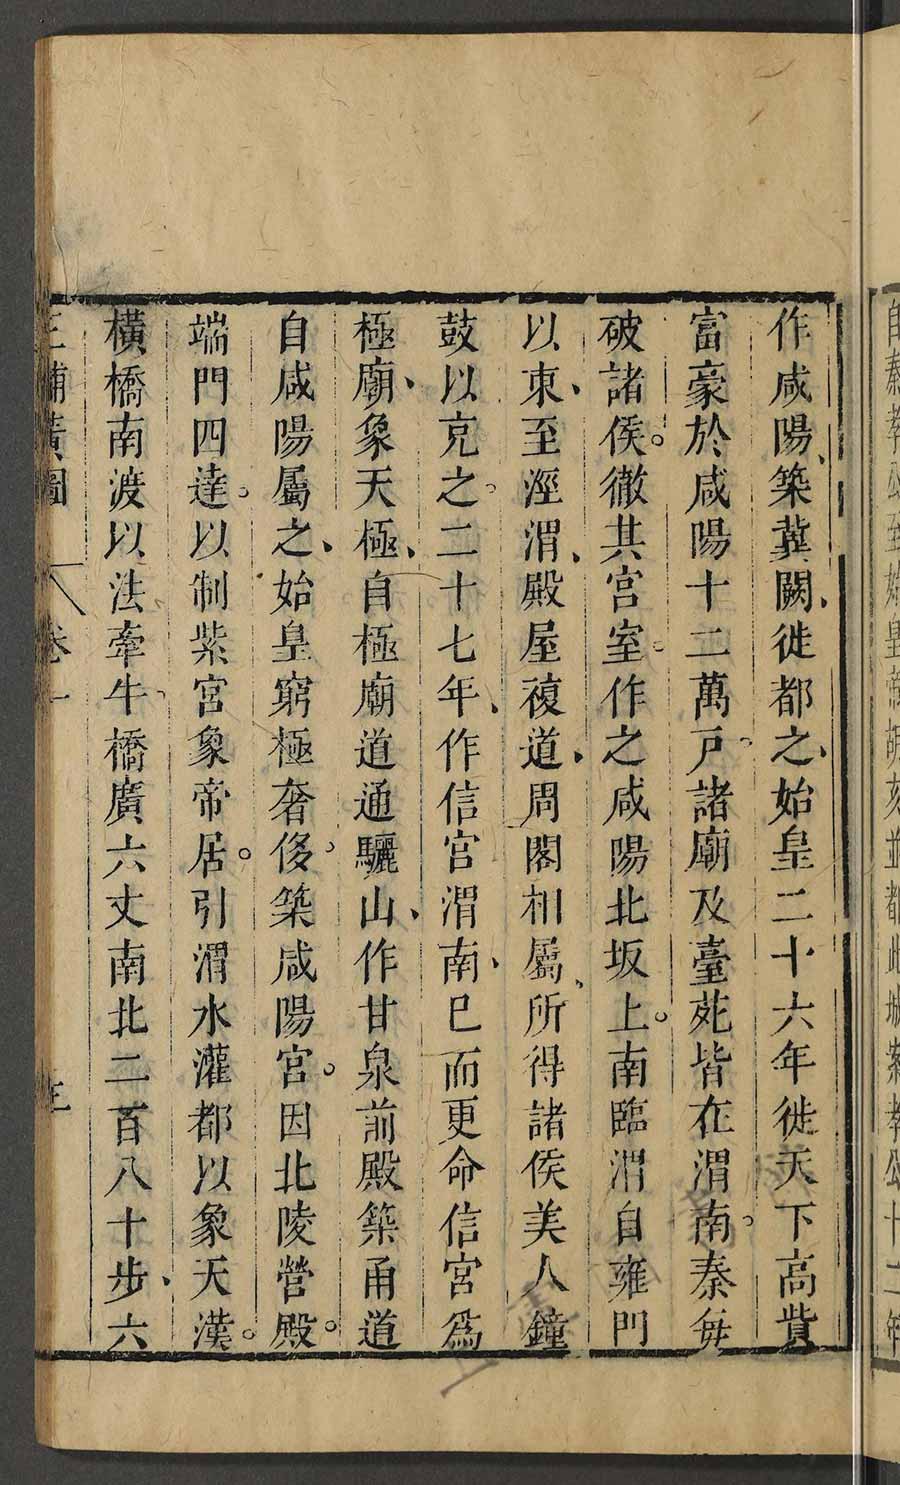 自秦孝公至始皇帝胡亥並都此城案孝公十二年
作咸陽、築冀闕、徙都之、始皇二十六年徙天下高貲
富豪於咸陽十二萬戶。諸廟及臺苑皆在渭南。秦每
破諸侯。徹其宮室。作之咸陽北坂上。南臨渭自雍門
以東、至涇渭、殿屋複道、周閣相屬、所得諸侯美人鐘
鼓以充之。二十七年、作信宮渭南、已而更命信宮爲
極廟、象天極、自極廟道通驪山、作甘泉前殿築甬道
自咸陽屬之、始皇窮極奢侈。築咸陽宮。因北陵營殿。
端門四達。以制紫宮象帝居。引渭水灌都以象天漢。
橫橋南渡以法牽牛、橋廣六丈南北二百八十步、六
三輔黃圖 卷一